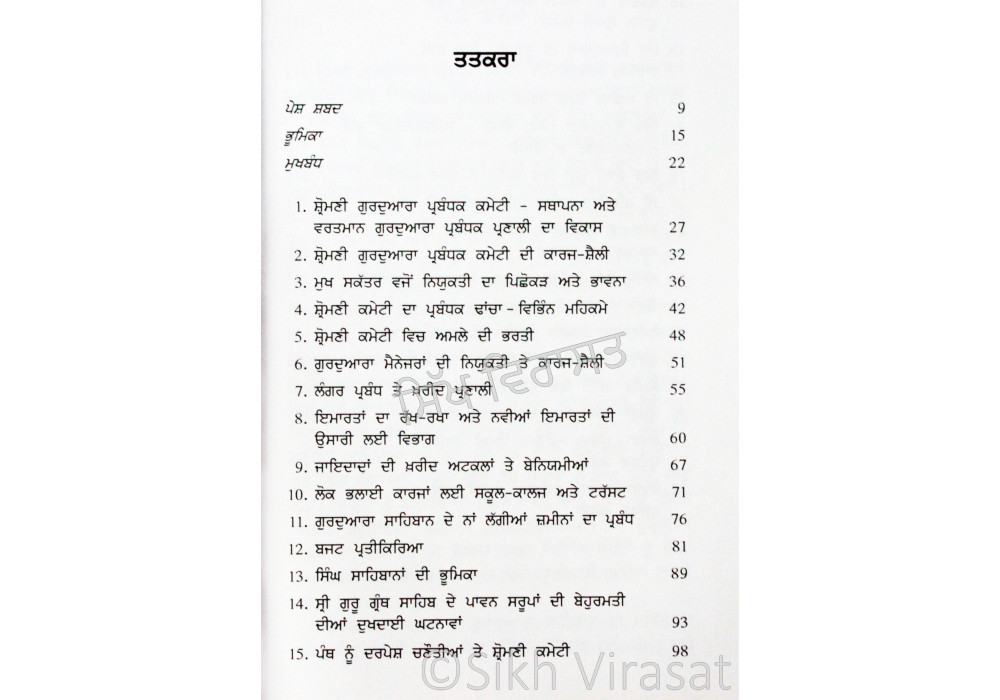 ਤਤਕਰਾ
ਪੇਸ਼ ਸ਼ਬਦ 9
ਭੂਮਿਕਾ 15
ਮੁਖਬੰਧ 22
1. ਸ਼੍ਰੋਮਣੀ ਗੁਰਦੁਆਰਾ ਪ੍ਰਬੰਧਕ ਕਮੇਟੀ - ਸਥਾਪਨਾ ਅਤੇ
ਵਰਤਮਾਨ ਗੁਰਦੁਆਰਾ ਪ੍ਰਬੰਧਕ ਪ੍ਰਣਾਲੀ ਦਾ ਵਿਕਾਸ 27
2. ਸ਼੍ਰੋਮਣੀ ਗੁਰਦੁਆਰਾ ਪ੍ਰਬੰਧਕ ਕਮੇਟੀ ਦੀ ਕਾਰਜ-ਸ਼ੈਲੀ 32
3. ਮੁਖ ਸਕੱਤਰ ਵਜੋਂ ਨਿਯੁਕਤੀ ਦਾ ਪਿਛੋਕੜ ਅਤੇ ਭਾਵਨਾ 36
4. ਸ਼੍ਰੋਮਣੀ ਕਮੇਟੀ ਦਾ ਪ੍ਰਬੰਧਕ ਢਾਂਚਾ - ਵਿਭਿੰਨ ਮਹਿਕਮੇ 42
5. ਸ਼੍ਰੋਮਣੀ ਕਮੇਟੀ ਵਿਚ ਅਮਲੇ ਦੀ ਭਰਤੀ 48
6. ਗੁਰਦੁਆਰਾ ਮੈਨੇਜਰਾਂ ਦੀ ਨਿਯੁਕਤੀ ਤੇ ਕਾਰਜ-ਸ਼ੈਲੀ 51
7. ਲੰਗਰ ਪ੍ਰਬੰਧ ਤੇ ਖ਼ਰੀਦ ਪ੍ਰਣਾਲੀ 55
8. ਇਮਾਰਤਾਂ ਦਾ ਰੱਖ-ਰਖਾ ਅਤੇ ਨਵੀਆਂ ਇਮਾਰਤਾਂ ਦੀ
ਉਸਾਰੀ ਲਈ ਵਿਭਾਗ 60
9. ਜਾਇਦਾਦਾਂ ਦੀ ਖ਼ਰੀਦ ਅਟਕਲਾਂ ਤੇ ਬੇਨਿਯਮੀਆਂ 67
10. ਲੋਕ ਭਲਾਈ ਕਾਰਜਾਂ ਲਈ ਸਕੂਲ-ਕਾਲਜ ਅਤੇ ਟਰੱਸਟ 71
11. ਗੁਰਦੁਆਰਾ ਸਾਹਿਬਾਨ ਦੇ ਨਾਂ ਲੱਗੀਆਂ ਜ਼ਮੀਨਾਂ ਦਾ ਪ੍ਰਬੰਧ 76
12. ਬਜਟ ਪ੍ਰਤੀਕਿਰਿਆ 81
13. ਸਿੰਘ ਸਾਹਿਬਾਨਾਂ ਦੀ ਭੂਮਿਕਾ 89
14. ਸ੍ਰੀ ਗੁਰੂ ਗ੍ਰੰਥ ਸਾਹਿਬ ਦੇ ਪਾਵਨ ਸਰੂਪਾਂ ਦੀ ਬੇਹੁਰਮਤੀ
ਦੀਆਂ ਦੁਖਦਾਈ ਘਟਨਾਵਾਂ 93
15. ਪੰਥ ਨੂੰ ਦਰਪੇਸ਼ ਚਣੌਤੀਆਂ ਤੇ ਸ਼੍ਰੋਮਣੀ ਕਮੇਟੀ 98
ਸਿੱਖ ਵਿਰਾਸਤ
©Sikh Virasat